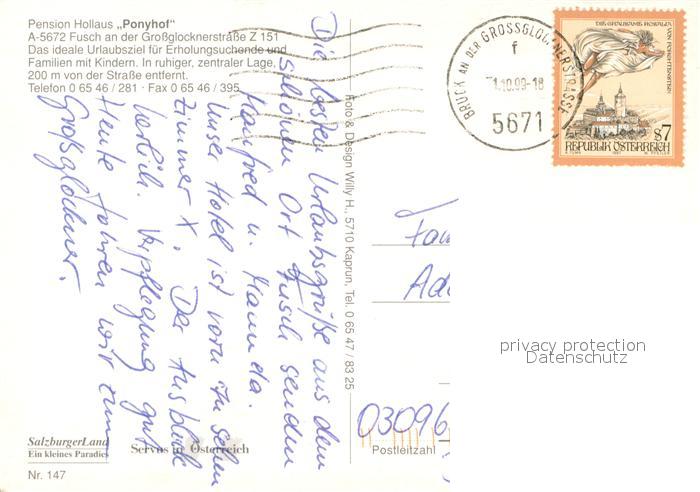 Pension Hollaus „Ponyhof“
A-5672 Fusch an der Großglocknerstraße Z 151
Das ideale Urlaubsziel für Erholungsuchende und
Familien mit Kindern. In ruhiger, zentraler Lage,
200 m von der Straße entfernt.
Telefon 0 65 46 / 281 · Fax 0 65 46 / 395
Die besten Urlaubsgrüße aus dem
schönen Ort Fusch senden
Manfred u. Hannelo.
Unser Hotel ist vorn zu sehen
Zimmer X. Der Ausblick
herrlich. Verpflegung gut
Heute fahren wir zum
Großglockner.
Foto & Design Willy H., 5710 Kaprun, Tel. 0 65 47 / 83 25
BRUCK AN DER GROSSGLOCKNERSTRASSE
f
1.10.99-18
5671
DIE GRAUSAME ROSALIA
VON FORCHTENSTEIN
S7
REPUBLIK ÖSTERREICH
1997
Fam
Ad
privacy protection
Datenschutz
03096
Postleitzahl
SalzburgerLand
Ein kleines Paradies
Servus in Österreich
Nr. 147